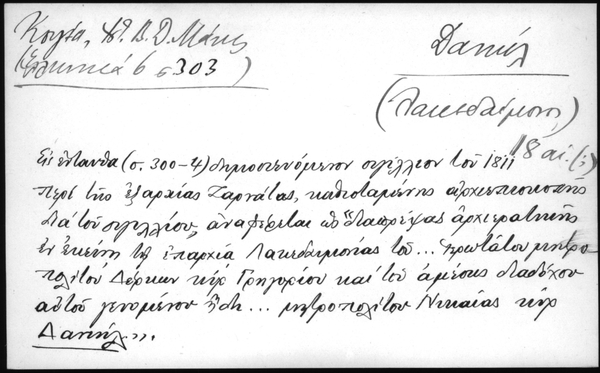 Κουγέα, Δανιήλ
(Ἑλληνικά 6 σ 303)
(Λακεδαίμονος)
18 αἰ. (;)
Εἰς ἐνταῦθα (σ. 300-4) δημοσιευόμενον σιγίλλιον τοῦ 1811
περὶ τῆς ἐξαρχίας Ζαρνάτας, καθισταμένης ἀρχιεπισκοπῆς
διὰ τοῦ σιγιλλίου, ἀναφέρεται ὡς "διαπρέψας ἀρχιερατικῶς
ἐν ἐκείνῃ τῇ ἐπαρχίᾳ Λακεδαιμονίας τοῦ... πρωτάτου μητρο-
πολίτου Δέρκων κύρ Γρηγορίου καὶ τοῦ ἀμέσως διαδόχου
αὐτοῦ γενομένου ἤδη... μητροπολίτου Νικαίας κύρ
Δανιήλ".